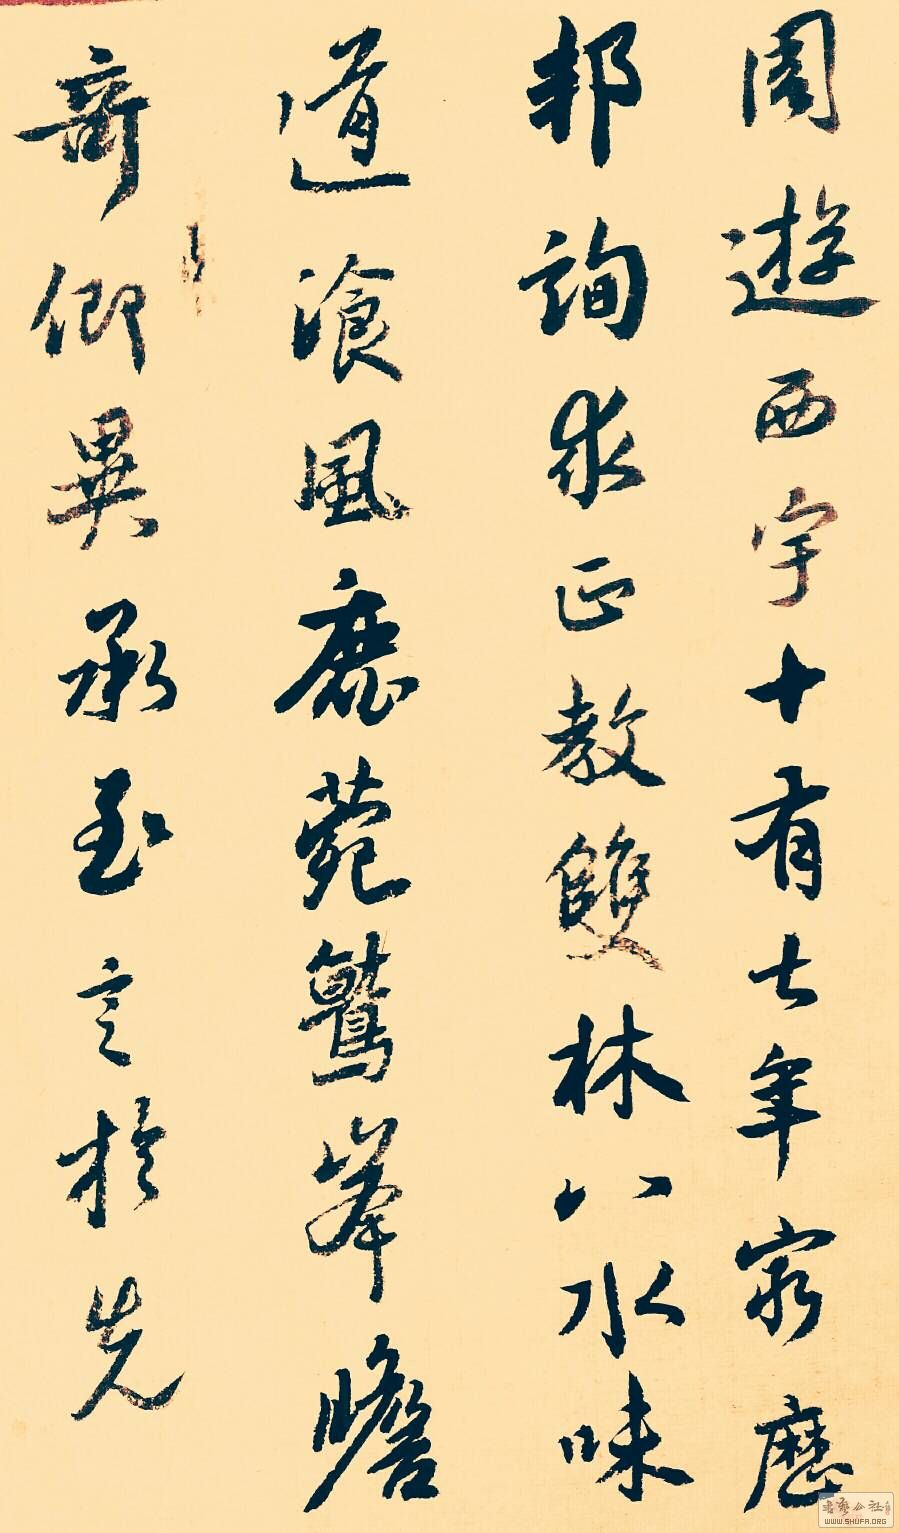 周遊西宇十有七年窮歷
邦詢求正教雙林八水味
道飡風鹿菀鷲峯瞻
奇仰異承至言於先
書藝公社
WWW.SHUFA.ORG